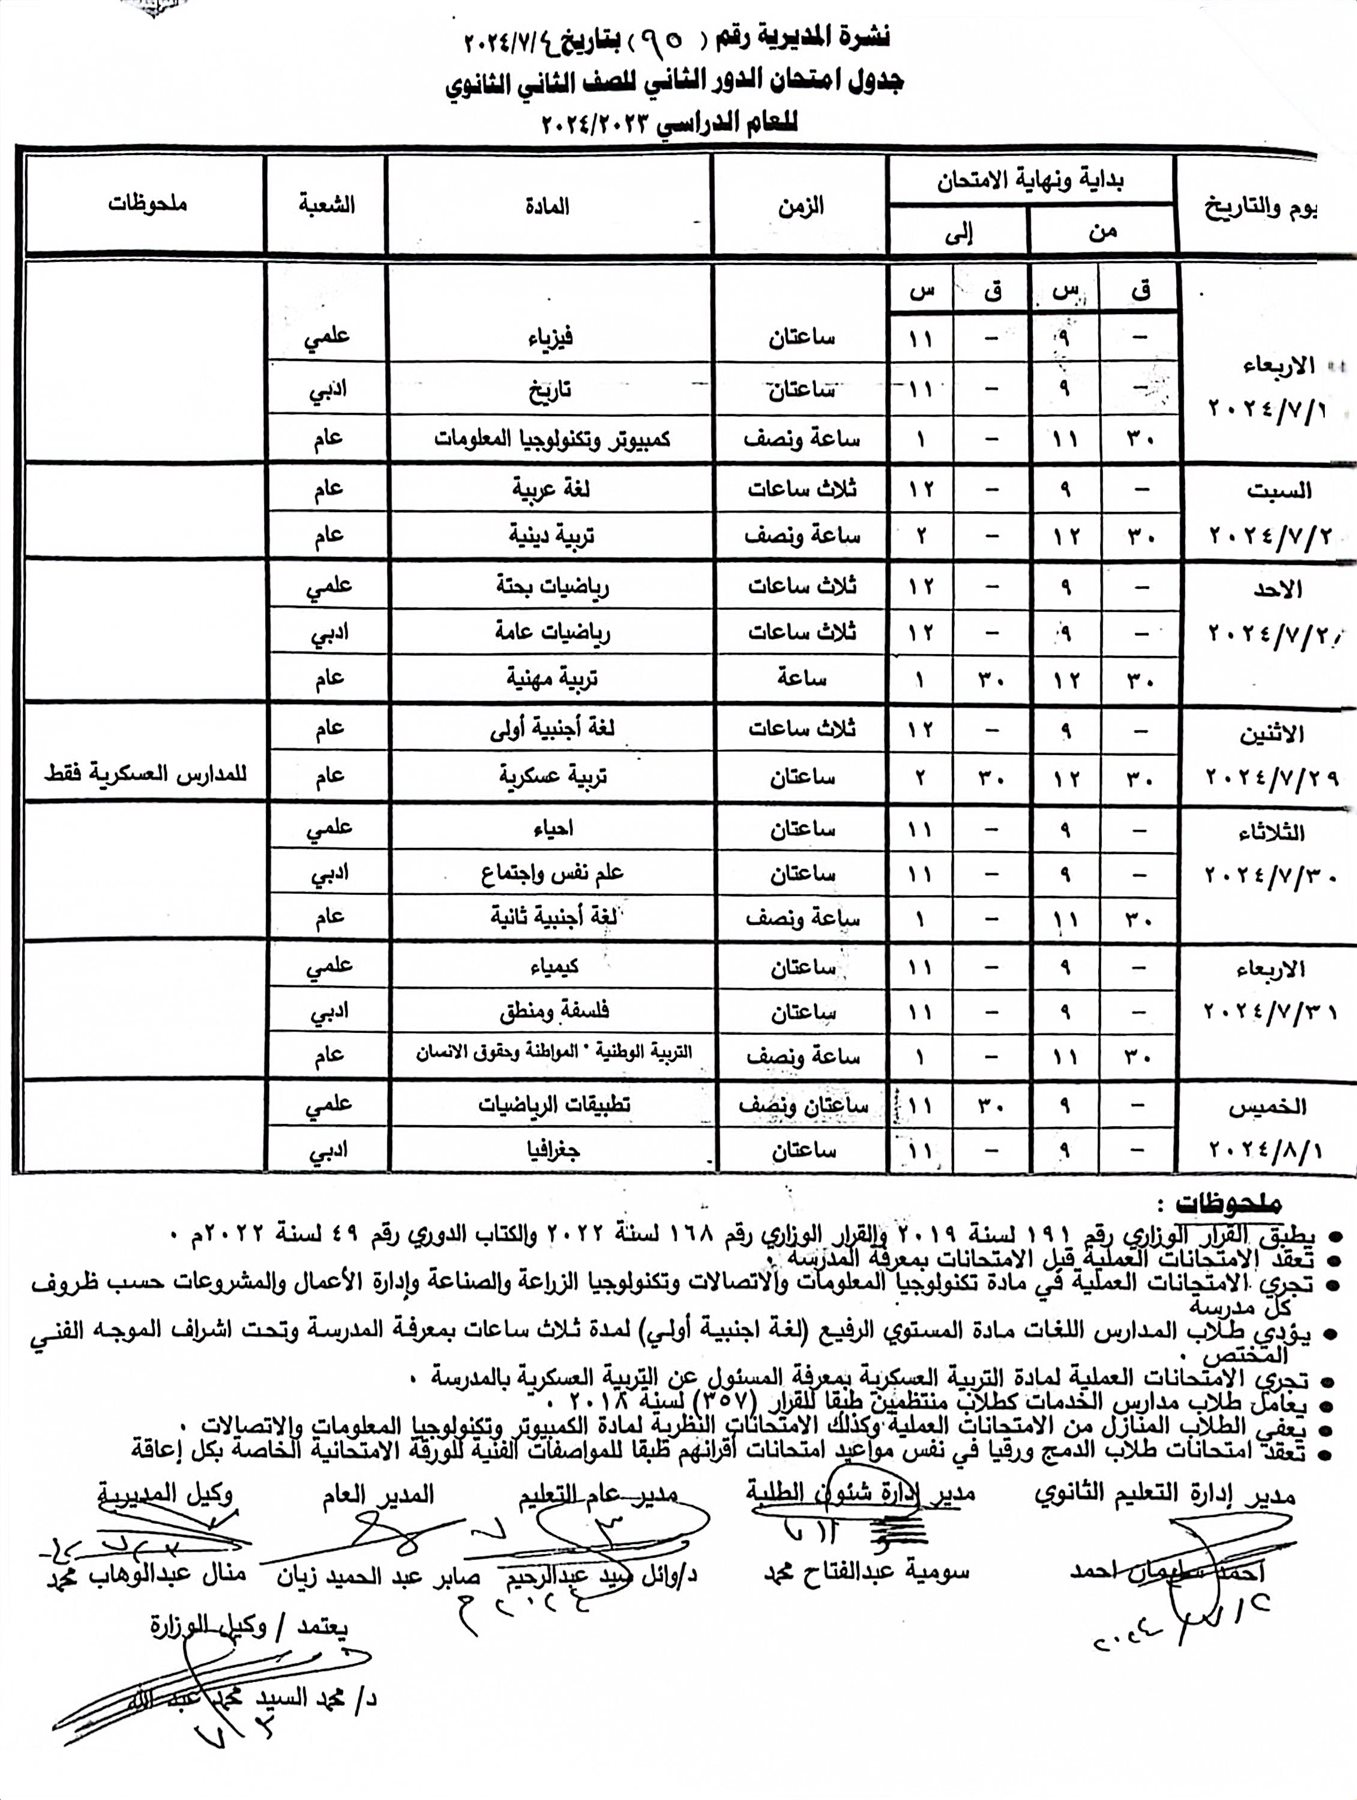 نشرة المديرية رقم ( ٩٥ ) بتاريخ ٢٠٢٤/٧/٤
جدول امتحان الدور الثاني للصف الثاني الثانوي
للعام الدراسي ٢٠٢٤/٢٠٢٣
يوم والتاريخ | بداية ونهاية الامتحان | الزمن | المادة | الشعبة | ملحوظات
من | إلى
ق | س | ق | س
– | ٩ | – | ١١ | ساعتان | فيزياء | علمي
الاربعاء
– | ٩ | – | ١١ | ساعتان | تاريخ | ادبي
٢٠٢٤/٧/
٣٠ | ١١ | – | ١ | ساعة ونصف | كمبيوتر وتكنولوجيا المعلومات | عام
السبت | – | ٩ | – | ١٢ | ثلاث ساعات | لغة عربية | عام
٢٠٢٤/٧/٢ | ٣٠ | ١٢ | – | ٢ | ساعة ونصف | تربية دينية | عام
الاحد | – | ٩ | – | ١٢ | ثلاث ساعات | رياضيات بحتة | علمي
٢٠٢٤/٧/٢ | – | ٩ | – | ١٢ | ثلاث ساعات | رياضيات عامة | ادبي
٣٠ | ١٢ | ٣٠ | ١ | ساعة | تربية مهنية | عام
الاثنين | – | ٩ | – | ١٢ | ثلاث ساعات | لغة أجنبية أولى | عام
٢٠٢٤/٧/٢٩ | ٣٠ | ١٢ | ٣٠ | ٢ | ساعتان | تربية عسكرية | عام | للمدارس العسكرية فقط
الثلاثاء | – | ٩ | – | ١١ | ساعتان | احياء | علمي
٢٠٢٤/٧/٣٠ | – | ٩ | – | ١١ | ساعتان | علم نفس واجتماع | ادبي
٣٠ | ١١ | – | ١ | ساعة ونصف | لغة أجنبية ثانية | عام
الاربعاء | – | ٩ | – | ١١ | ساعتان | كيمياء | علمي
٢٠٢٤/٧/٣١ | – | ٩ | – | ١١ | ساعتان | فلسفة ومنطق | ادبي
٣٠ | ١١ | – | ١ | ساعة ونصف | التربية الوطنية " المواطنة وحقوق الانسان | عام
الخميس | – | ٩ | ٣٠ | ١١ | ساعتان ونصف | تطبيقات الرياضيات | علمي
٢٠٢٤/٨/١ | – | ٩ | – | ١١ | ساعتان | جغرافيا | ادبي
ملحوظات :
• يطبق القرار الوزاري رقم ١٩١ لسنة ٢٠١٩ والقرار الوزاري رقم ١٦٨ لسنة ٢٠٢٢ والكتاب الدوري رقم ٤٩ لسنة ٢٠٢٢م .
• تعقد الامتحانات العملية قبل الامتحانات بمعرفة المدرسة .
• تجري الامتحانات العملية في مادة تكنولوجيا المعلومات والاتصالات وتكنولوجيا الزراعة والصناعة وإدارة الأعمال والمشروعات حسب ظروف
كل مدرسة
• يؤدي طلاب المدارس اللغات مادة المستوي الرفيع (لغة اجنبية أولي) لمدة ثلاث ساعات بمعرفة المدرسة وتحت اشراف الموجه الفني
المختص .
• تجري الامتحانات العملية لمادة التربية العسكرية بمعرفة المسئول عن التربية العسكرية بالمدرسة .
• يعامل طلاب مدارس الخدمات كطلاب منتظمين طبقا للقرار (٣٥٧) لسنة ٢٠١٨ .
• يعفي الطلاب المنازل من الامتحانات العملية وكذلك الامتحانات النظرية لمادة الكمبيوتر وتكنولوجيا المعلومات والاتصالات .
• تعقد امتحانات طلاب الدمج ورقيا في نفس مواعيد امتحانات أقرانهم طبقا للمواصفات الفنية للورقة الامتحانية الخاصة بكل إعاقة
مدير إدارة التعليم الثانوي | مدير إدارة شئون الطلبة | مدير عام التعليم | المدير العام | وكيل المديرية
احمد سليمان احمد | سومية عبدالفتاح محمد | د/وائل سيد عبدالرحيم | صابر عبد الحميد زيان | منال عبدالوهاب محمد
يعتمد / وكيل الوزارة
د/ محمد السيد محمد عبد الله